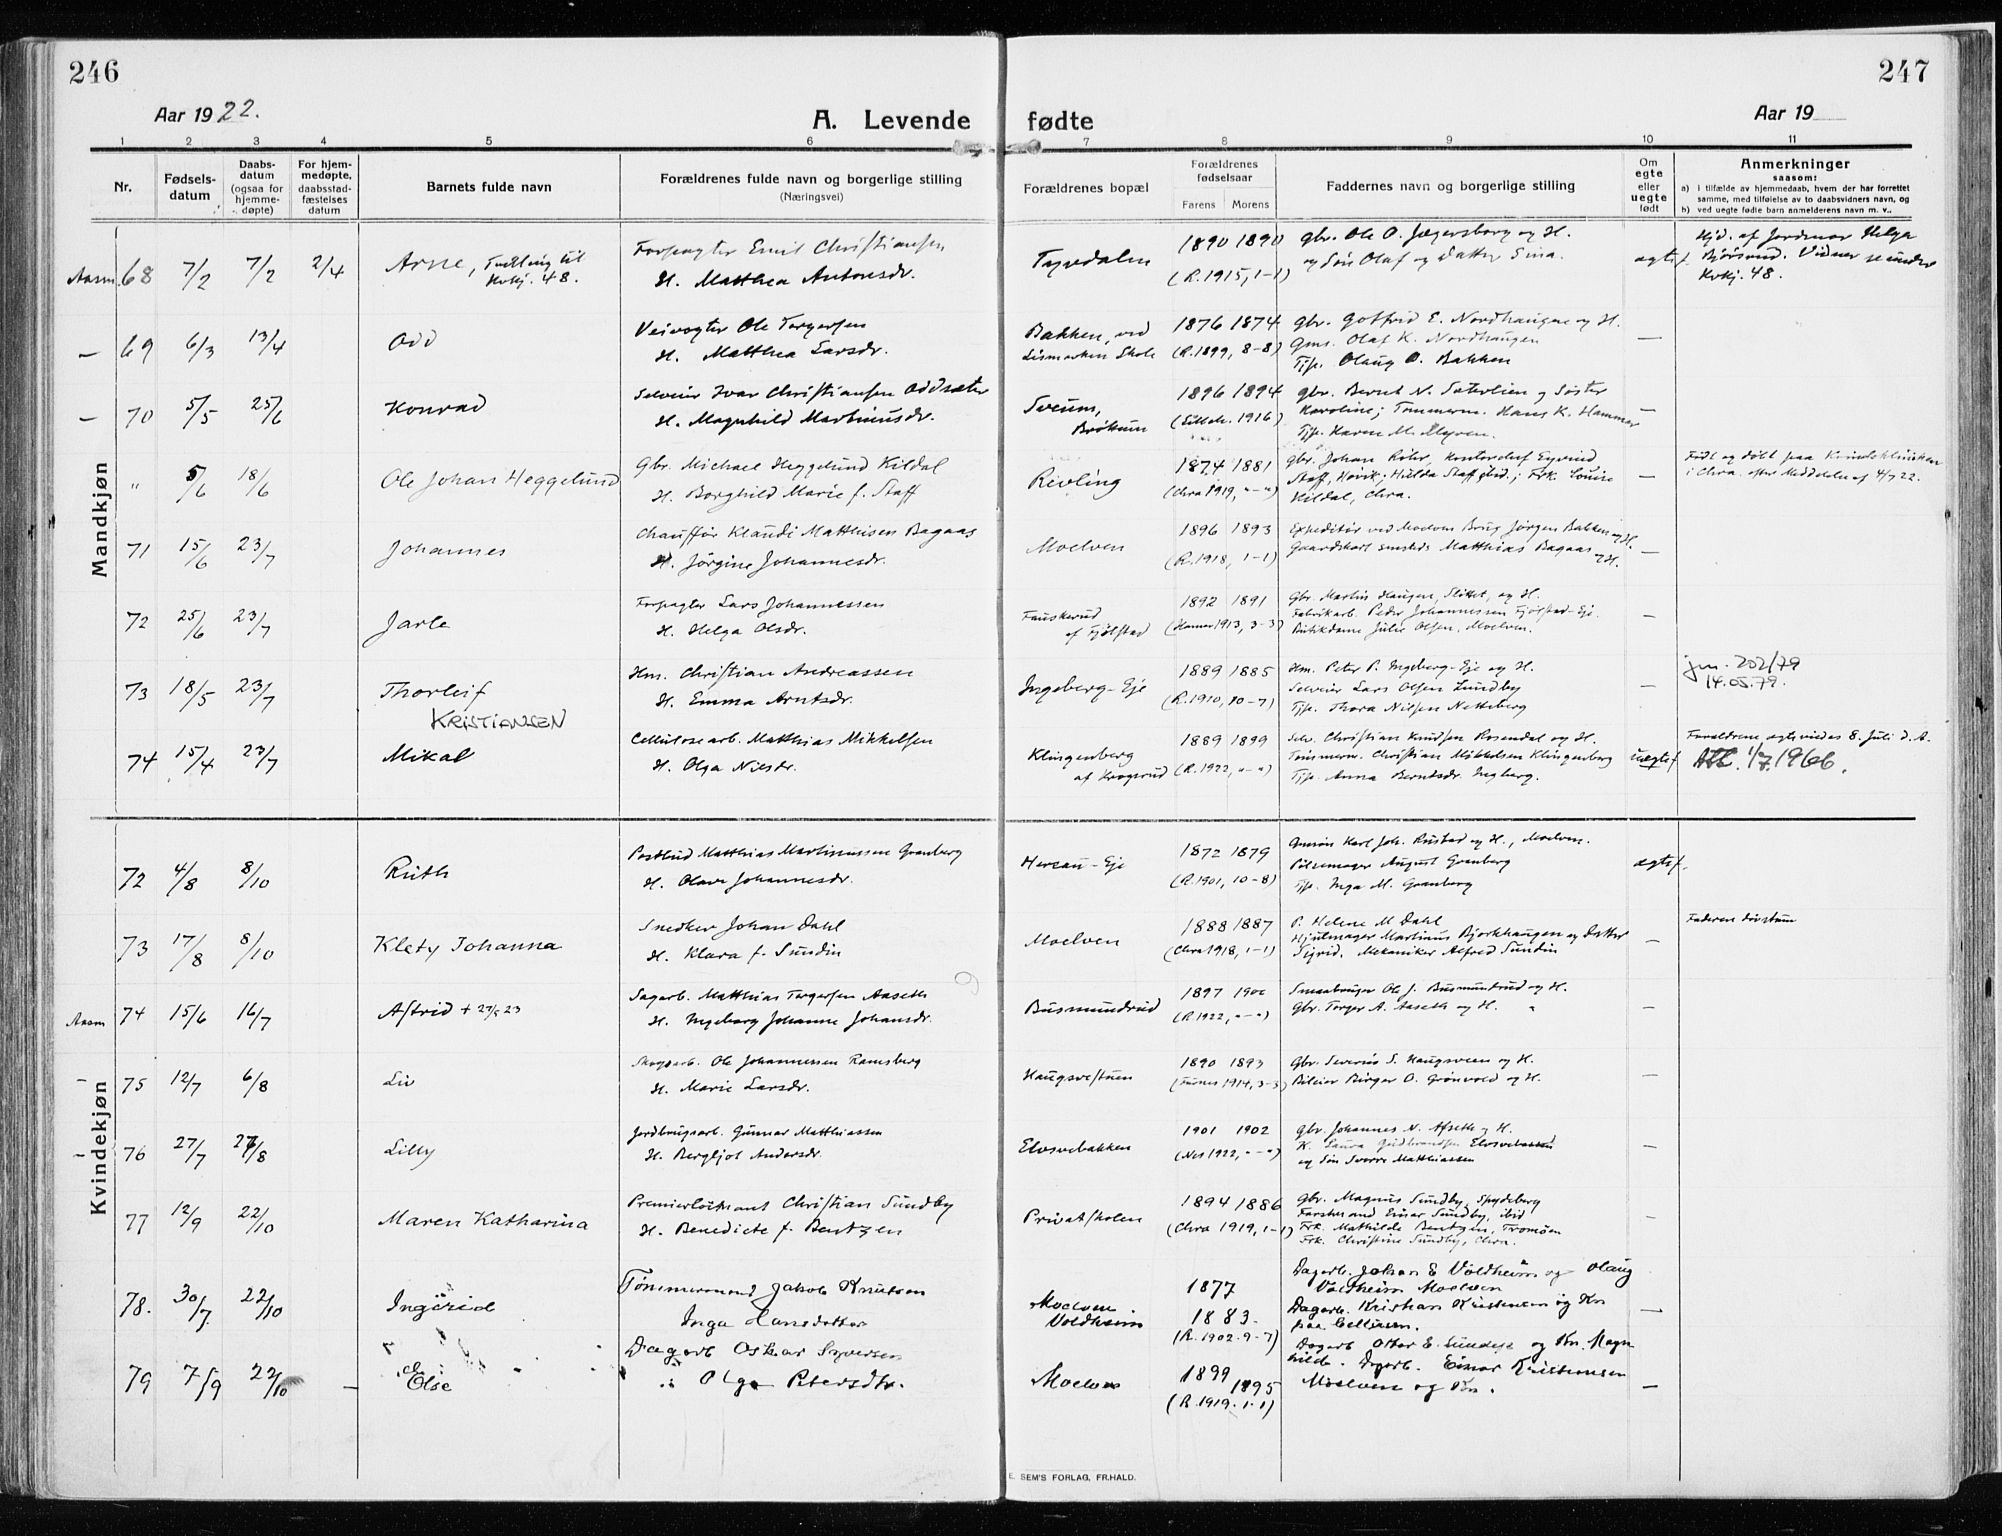 246
247
Aar 1922.
A. Levende fødte
Aar 19
1 2 3 4 5 6 7 8 9 10 11
Nr.
Fødsels-
datum
Daabs-
datum
(ogsaa for
hjemme-
døpte)
For hjem-
medøpte,
daabsstad-
fæstelses
datum
Barnets fulde navn
Forældrenes fulde navn og borgerlige stilling
(Næringsvei)
Forældrenes bopæl
Forældrenes
fødselsaar
Farens Morens
Faddernes navn og borgerlige stilling
Om
egte
eller
uegte
født
Anmerkninger
saasom:
a) i tilfælde av hjemmedaab, hvem der har forrettet
samme, med tilføielse av to daabsvidners navn, og
b) ved uegte fødte barn anmelderens navn m. v..
Mandkjøn
Aasm. 68 7/2 7/2 2/4 Arne, Tvilling til
Kvkj. 48.
Forpagter Emil Christiansen
H. Matthea Antonsdr.
1890 1890
(R. 1915, 1-1)
Gbr. Ole O. Jægersborg og H.
og Søn Olaf og Datter Sina.
ægtef.
Hjd. af Jordmor Helga
Bjørsund. Vidner se under
Kvkj. 48.
— 69 6/3 13/4 Odd
Veivogter Ole Torgersen
H. Matthea Larsdr.
Bakken, ved
Lismarken Skole
1876 1874
(R. 1899, 8-8)
Gbr. Gotfrid E. Nordhaugen og H.
Gms. Olaf K. Nordhaugen
Tjp. Olaug O. Bakken
—
— 70 5/5 25/6 Konrad
Selveier Ivar Christiansen Oddsæter
H. Magnhild Martinusdr.
Sveum,
Brøttum
1896 1894
(Lilleh. 1916)
Gbr. Bernt N. Sæterlien og Søster
Karoline; Tømmerm. Hans K. Hammer
Tjp. Karen M. Myren.
—
" 5/6 18/6 Ole Johan Heggelund
Gbr. Michael Heggelund Kildal
H. Borghild Marie f. Staff
Revling
1874 1881
(Chra 1919, "-")
Gbr. Johan Rohr, Kontorchef Eyvind
Staff, Høvik; Hulda Staff ibid.; Frk. Louise
Kildal, Chra.
—
Født og døbt paa Kvindeklinikken
i Chra. efter Meddelelse af 4/7 22.
71 15/6 23/7 Johannes
Chauffør Klaudi Matthisen Bagaas
H. Jørgine Johannesdr.
Moelven
1896 1893
(R. 1918, 1-1)
Expeditør ved Moelven Brug Jørgen Bakken og H.
Gaardskarl smsteds Matthias Bagaas og H.
—
72 25/6 23/7 Jarle
Forpagter Lars Johannessen
H. Helga Olsdr.
Fauskerud
af Fjølstad
1892 1891
(Hamar 1913, 3-3)
Gbr. Martin Haugen, Slittet, og H.
Fabrikarb. Peder Johannessen Fjølstad-Eje.
Butikdame Julie Olsen, Moelven.
—
73 18/5 23/7 Thorleif
KRISTIANSEN
Hm. Christian Andreassen
H. Emma Arntsdr.
Ingeberg-Eje
1889 1885
(R. 1910, 10-7)
Hm. Peter P. Ingeberg-Eje og H.
Selveier Lars Olsen Lundby
Tjp. Thora Nilsen Netteberg
—
jn. 202/79
14.05.79.
74 15/4 23/7 Mikal
Cellulosearb. Matthias Mikkelsen
H. Olga Nilsdr.
Klingenberg
af Krogsrud
1889 1899
(R. 1922, "-")
Selv. Christian Knudsen Rosendal og H.
Tømmerm. Christian Mikkelsen Klingenberg
Tjp. Anna Berntsdr. Ingberg.
uægtef
Forældrene ægteviedes 8. Juli d. A.
Att. 1/7. 1966.
Kvindekjøn
72 4/8 8/10 Ruth
Postbud Matthias Martinussen Granberg
H. Olave Johannesdr.
1872 1879
(R. 1901, 10-8)
Karl Joh. Rustad og H., Moelven.
Pølsemager August Granberg
Tjp. Inga M. Granberg
ægtef.
73 17/8 8/10 Klety Johanna
Snedker Johan Dahl
H. Klara f. Sundin
Moelven
1888 1887
(Chra 1918, 1-1)
P. Helene M Dahl
Hjulmager Martinus Bjørkhaugen og Datter
Sigrid. Mekaniker Alfred Sundin
—
Faderen døvstum
Aasm 74 15/6 16/7 Astrid
Sagarb. Matthias Torgersen Aaseth
H. Ingeborg Johanne Johansdr.
Busmundrud
1897 1900
(R. 1922, "-")
Smaabruger Ole J. Busmundrud og H.
Gbr. Torger A. Aaseth og H.
—
— 75 12/7 6/8 Liv
Skogsarb. Ole Johannessen Ramsberg
H. Marie Larsdr.
Haugsvestuen
1890 1893
(Furnes 1914, 3-3)
Gbr. Severin S. Haugsveen og H.
Bileier Birger O. Grønvold og H.
—
— 76 27/7 27/8 Lilly
Jordbrugsarb. Gunnar Matthiassen
H. Bergljot Andersdr.
Elvsvebakken
1901 1902
(Nes 1922, "-")
Gbr. Johannes N. Afseth og H.
K. Laura Gudbrandsen Elvsvebakken
og Søn Sverre Matthiassen
77 12/9 22/10 Maren Katharina
Premierløitnant Christian Sundby
H. Benedicte f. Bentzen
Privatskolen
1894 1886
(Chra 1919, 1-1)
Gbr. Magnus Sundby, Spydeberg
Forstmand Einar Sundby, ibid
Frk. Mathilde Bentzen, Tromøen
Frk. Christine Sundby, Chra.
—
78. 30/7 22/10 Ingerid
Tømmermand Jakob Knutsen
Inga Hansdatter
Moelven.
Voldheim
1877
1883.
(R. 1902. 9-7)
Dagarb. Johan E Voldheim og Olaug
Voldheim Moelven
Dagarb. Kristian Kristensen og Kn
—
79 7/9 22/10 — Else
Dagarb Oskar Syversen
Olga Petersdtr.
Moelven
1899
1895
(R. 1919. 1-1)
Dagarb Ottar E. og Kn. Magn
hilde. Dagarb. Einar Kristiansen
Moelven og Kn.
—
E. SEM'S FORLAG, FR.HALD.